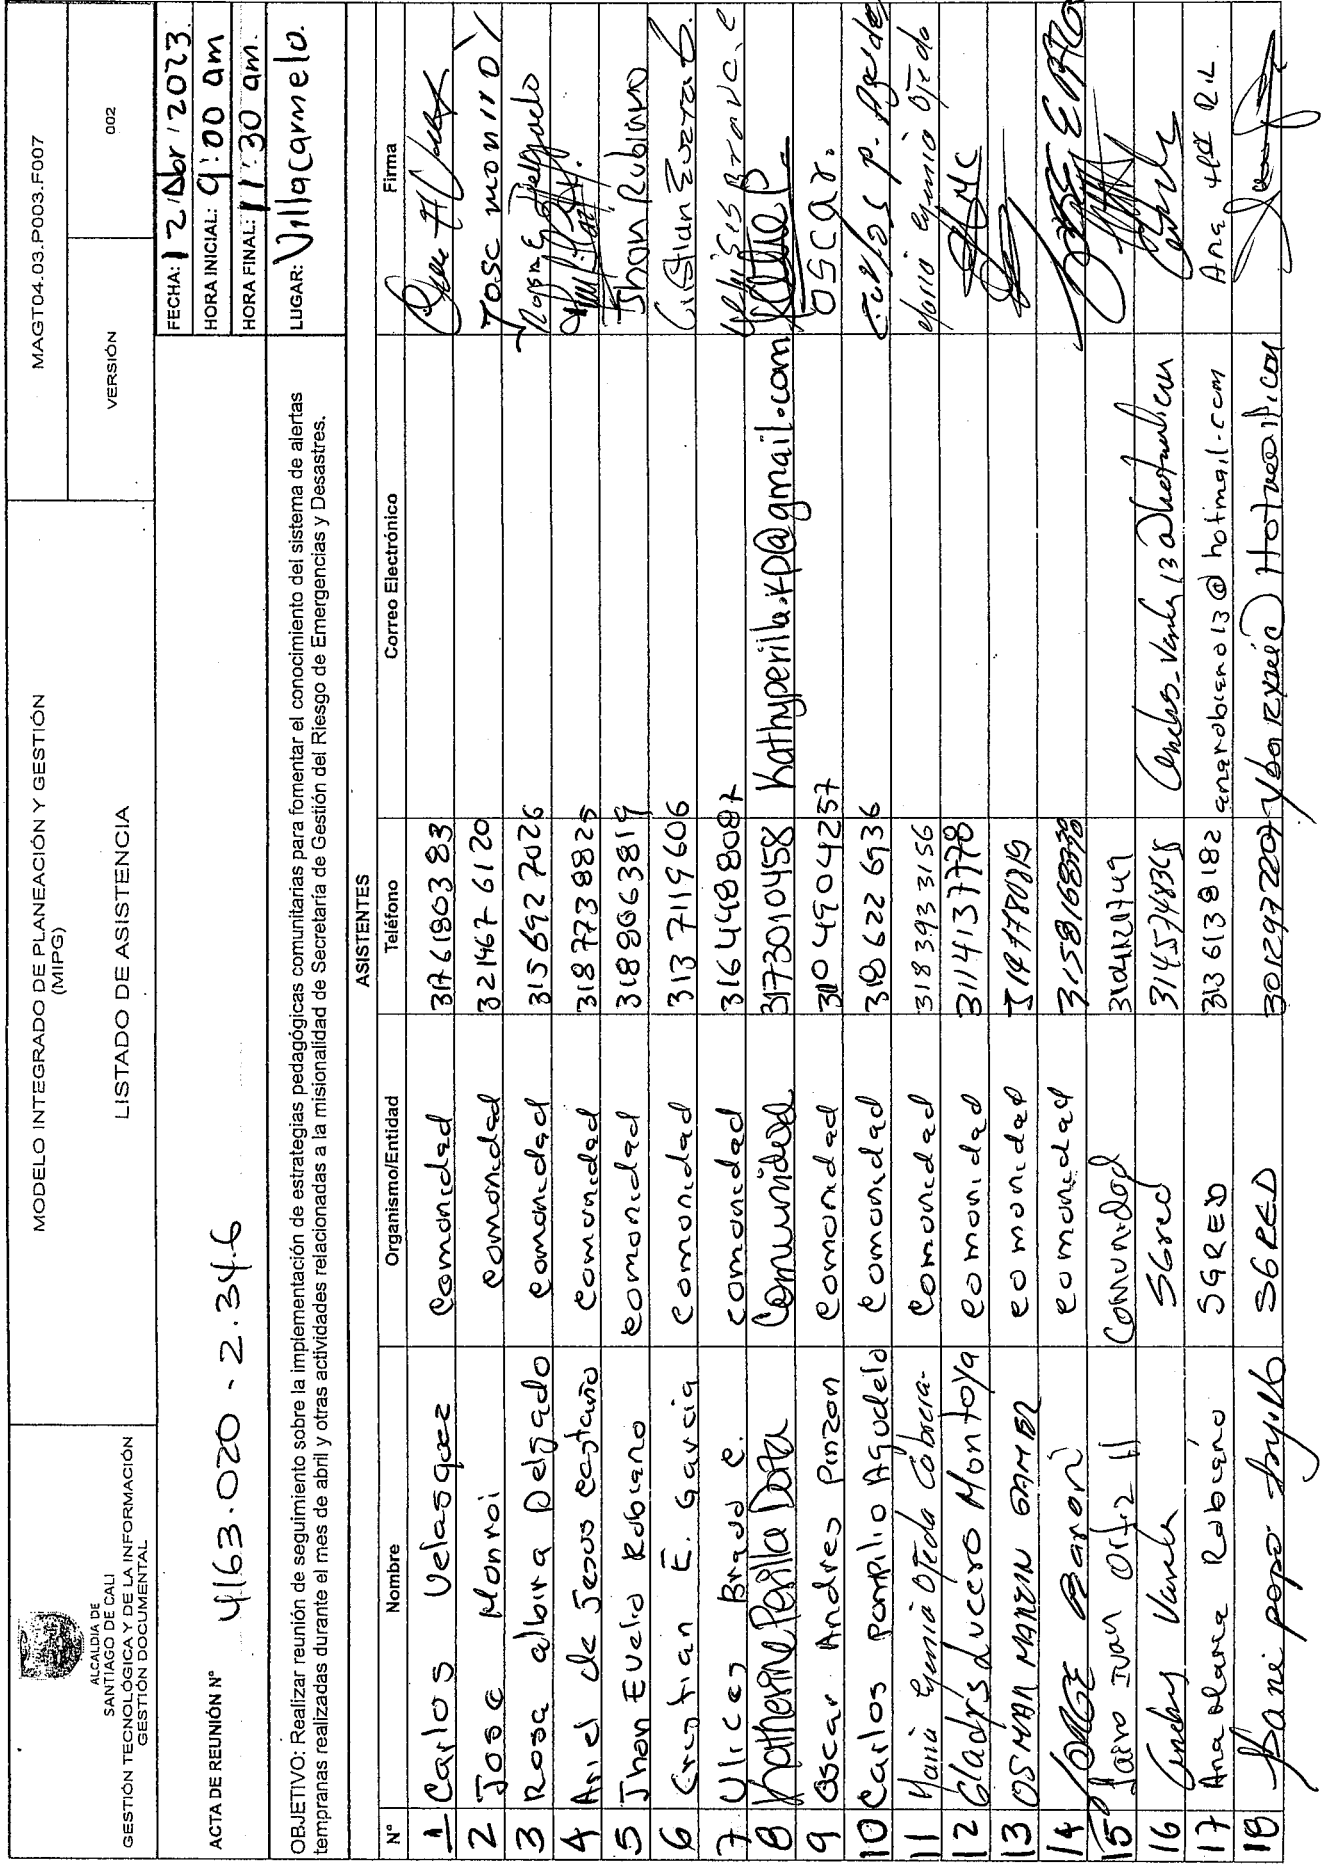 ALCALDIA DE
SANTIAGO DE CALI
GESTIÓN TECNOLÓGICA Y DE LA INFORMACIÓN
GESTIÓN DOCUMENTAL
MODELO INTEGRADO DE PLANEACIÓN Y GESTIÓN
(MIPG)
LISTADO DE ASISTENCIA
MAGT04.03.P003.F007
VERSIÓN 002
ACTA DE REUNIÓN N° 4163.020-2.34.6
FECHA: 12/Abr/2023
HORA INICIAL: 9:00 am
HORA FINAL: 11:30 am.
OBJETIVO: Realizar reunión de seguimiento sobre la implementación de estrategias pedagógicas comunitarias para fomentar el conocimiento del sistema de alertas
tempranas realizadas durante el mes de abril y otras actividades relacionadas a la misionalidad de Secretaría de Gestión del Riesgo de Emergencias y Desastres.
LUGAR: Villacarmelo.
ASISTENTES
N° Nombre Organismo/Entidad Teléfono Correo Electrónico Firma
1 Carlos Velasquez comonidad 3176180383
2 Jose Monroi comonidad 3214676120 Jose monrroy
3 Rosa albira Delgado comonidad 3156927026 Rosa E Delgado
4 Ariel de Jesus castaño comonidad 3187738825
5 Jhon Evelio Robiano comonidad 3188663819 Jhon Rubiano
6 Cristian E. Garcia comonidad 3137119606 Cristian
7 Ulices Bravo c. comonidad 3164488087 Ulisis Bravo c
8 Katherine Perilla Dota Comunidad 3173010458 Kathyperilla.kp@gmail.com Kathe P.
9 Oscar Andres Pinzon comonidad 3104904257 OSCAR.
10 Carlos Pompilio Agudelo comonidad 3186226936 Carlos P. Agudelo
11 Maria Genia Ojeda Cabrera comonidad 3183933156 Maria Genia Ojeda
12 Gladys Lucero Montoya comonidad 3114137778
13 OSMAN comonidad
14 JORGE comonidad
15 Jairo Ivan Ortiz comunidad
16 Varela SGred 3145748365
17 Ana Robiano SGRED 3136138182 anarobiano13@hotmail.com Ana
18 SGRED 3012972207